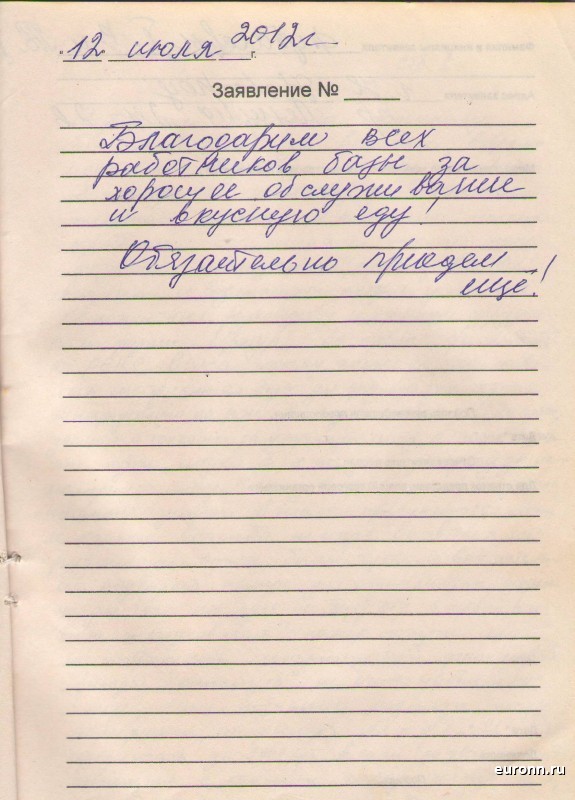 12 июля 2012г
г.
Заявление № ____
Благодарим всех
работников базы за
хорошее обслуживание
и вкусную еду!
Обязательно приедем
ещё!
euronn.ru